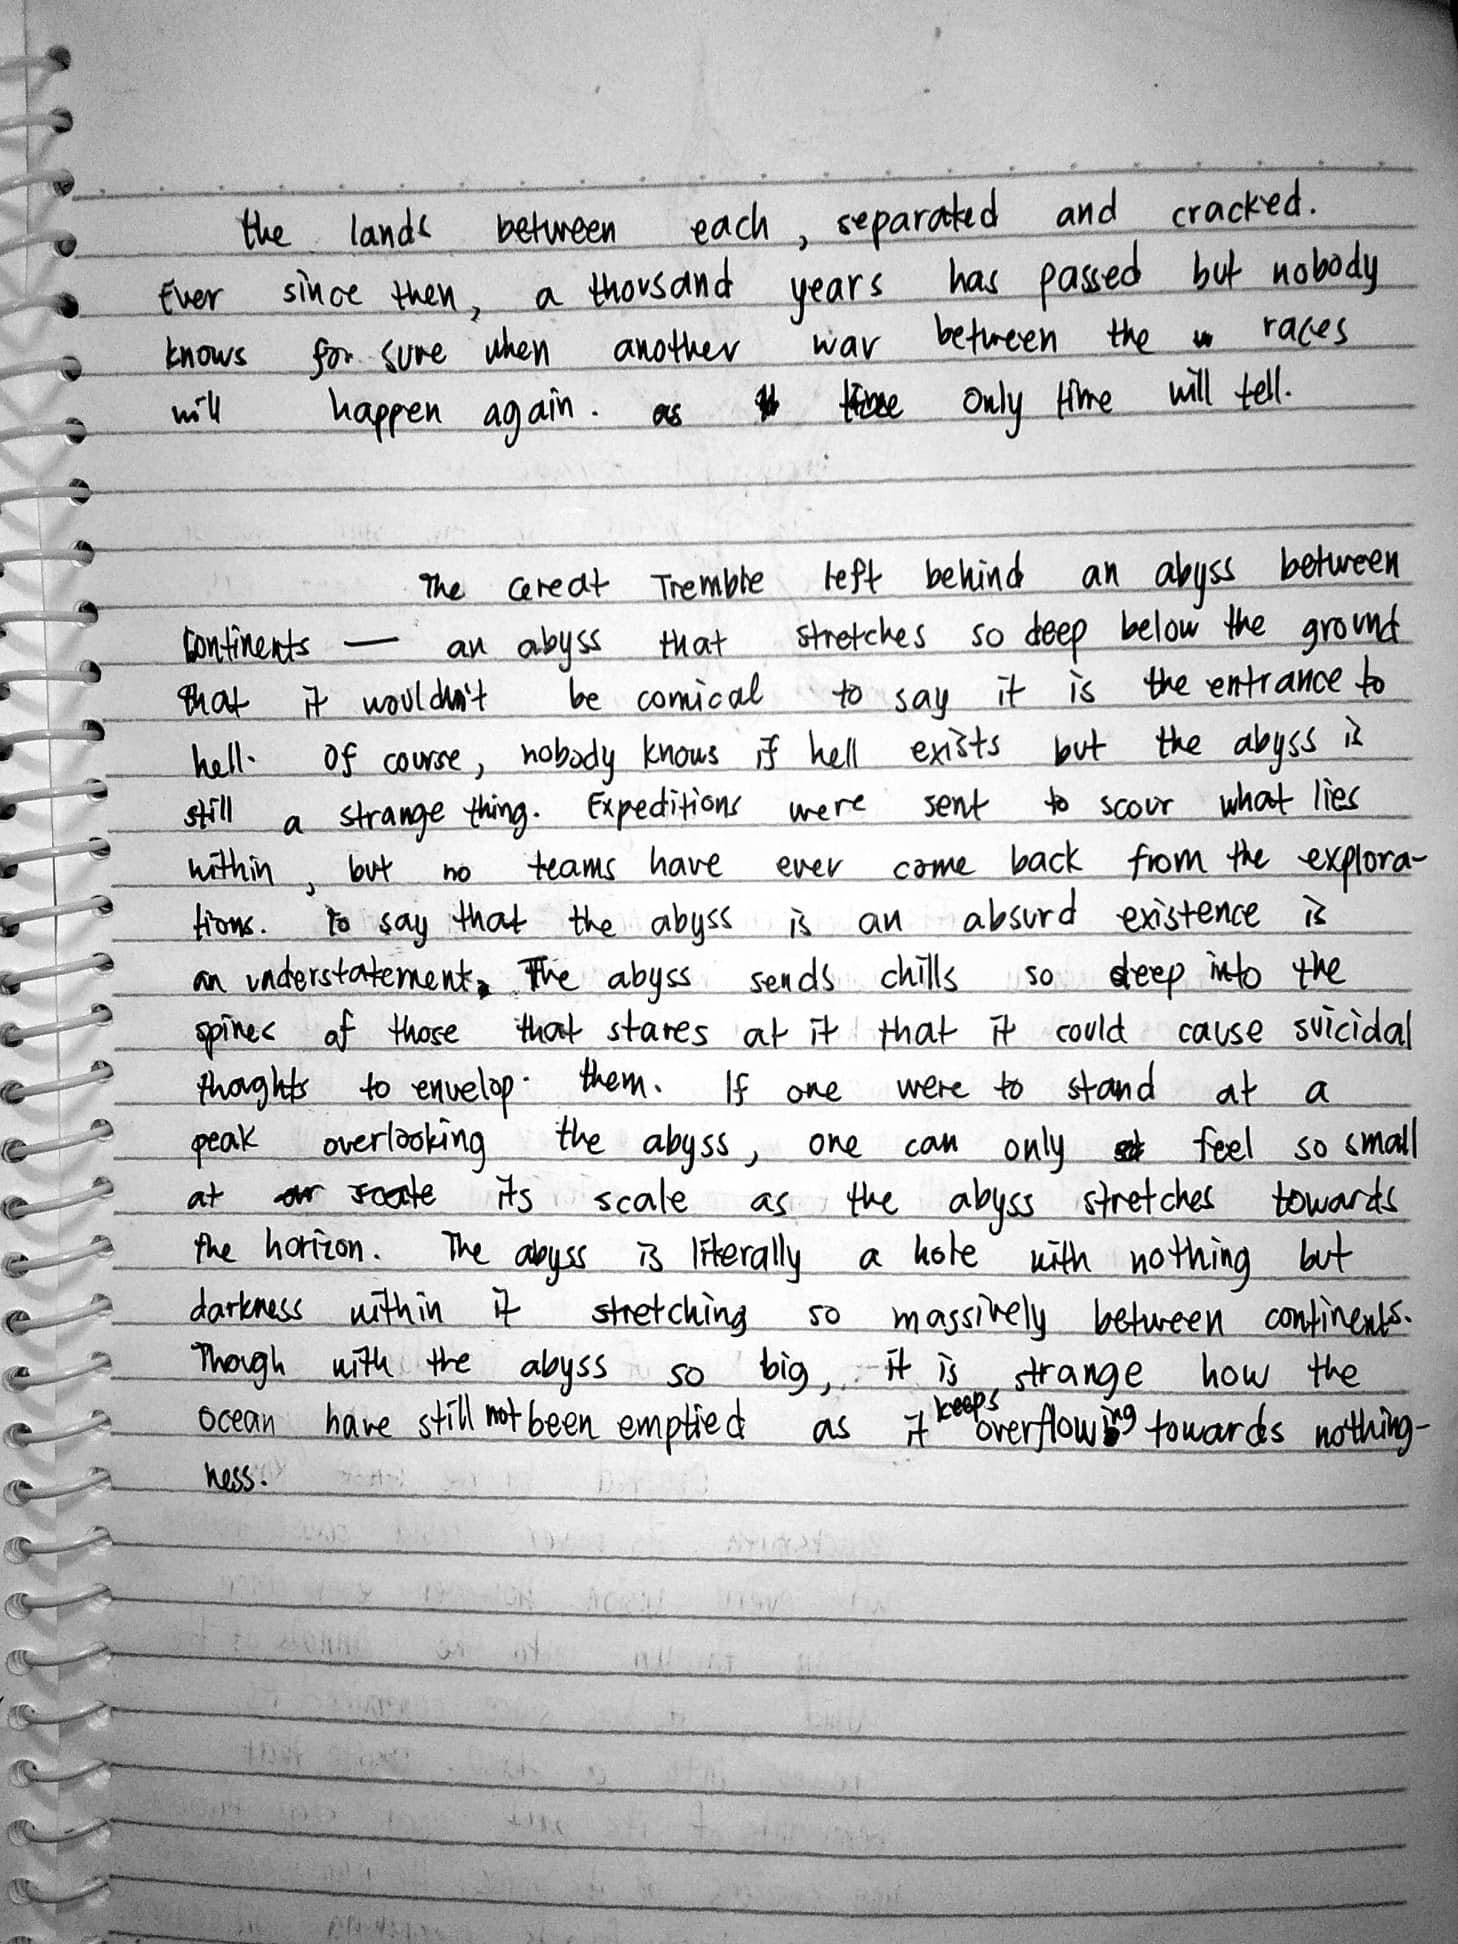 the lands between each, separated and cracked.
Ever since then, a thousand years has passed but nobody
knows for sure when another war between the races
will happen again. as time only time will tell.
The Great Tremble left behind an abyss between
continents — an abyss that stretches so deep below the ground
that it wouldn't be comical to say it is the entrance to
hell. Of course, nobody knows if hell exists but the abyss is
still a strange thing. Expeditions were sent to scour what lies
within, but no teams have ever come back from the explora-
tions. To say that the abyss is an absurd existence is
an understatement. The abyss sends chills so deep into the
spines of those that stares at it that it could cause suicidal
thoghts to envelop them. If one were to stand at a
peak overlooking the abyss, one can only feel so small
at scale its scale as the abyss stretches towards
the horizon. The abyss is literally a hole with nothing but
darkness within it stretching so massively between continents.
Though with the abyss so big, it is strange how the
ocean have still not been emptied as it keeps overflowing towards nothing-
ness.